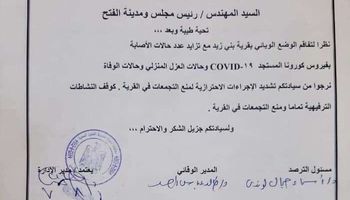 السيد المهندس / رئيس مجلس ومدينة الفتح
تحية طيبة وبعد ،،،
نظرا لتفاقم الوضع الوبائي بقرية بني زيد مع تزايد عدد حالات الأصابة
بفيروس كورونا المستجد COVID-١٩ وحالات العزل المنزلي وحالات الوفاة
نرجوا من سيادتكم تشديد الإجراءات الاحترازية لمنع التجمعات في القرية . كوقف النشاطات
الترفيهية تماما ومنع التجمعات في القرية .
ولسيادتكم جزيل الشكر والاحترام ،،،
مسئول الترصد المدير الوقائي يعتمد/ مدير الإدارة